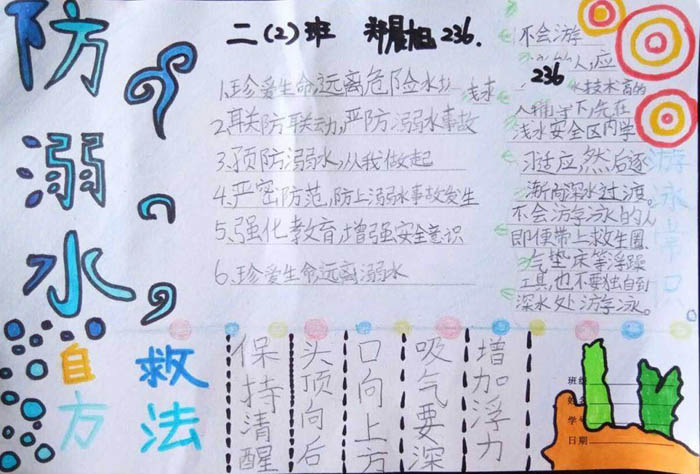 防溺水
二(2)班 郑晨旭 236.
1、珍爱生命,远离危险水域
2、联防联动,严防溺水事故
3、预防溺水,从我做起
4、严密防范,防上溺水事故发生
5、强化教育,增强安全意识
6、珍爱生命远离溺水
不会游
人,应
236
水技术高的
下,先在
浅水安全区内学
习适应,然后逐
渐向深水过渡。
不会游泳的人
即便带上救生圈
气垫床等浮
工具,也不要独自到
深水处游泳。
游泳常识
自救
方法
保持清醒
头顶向后
口向上方
吸气要深
增加浮力
班级
姓名
学号
日期